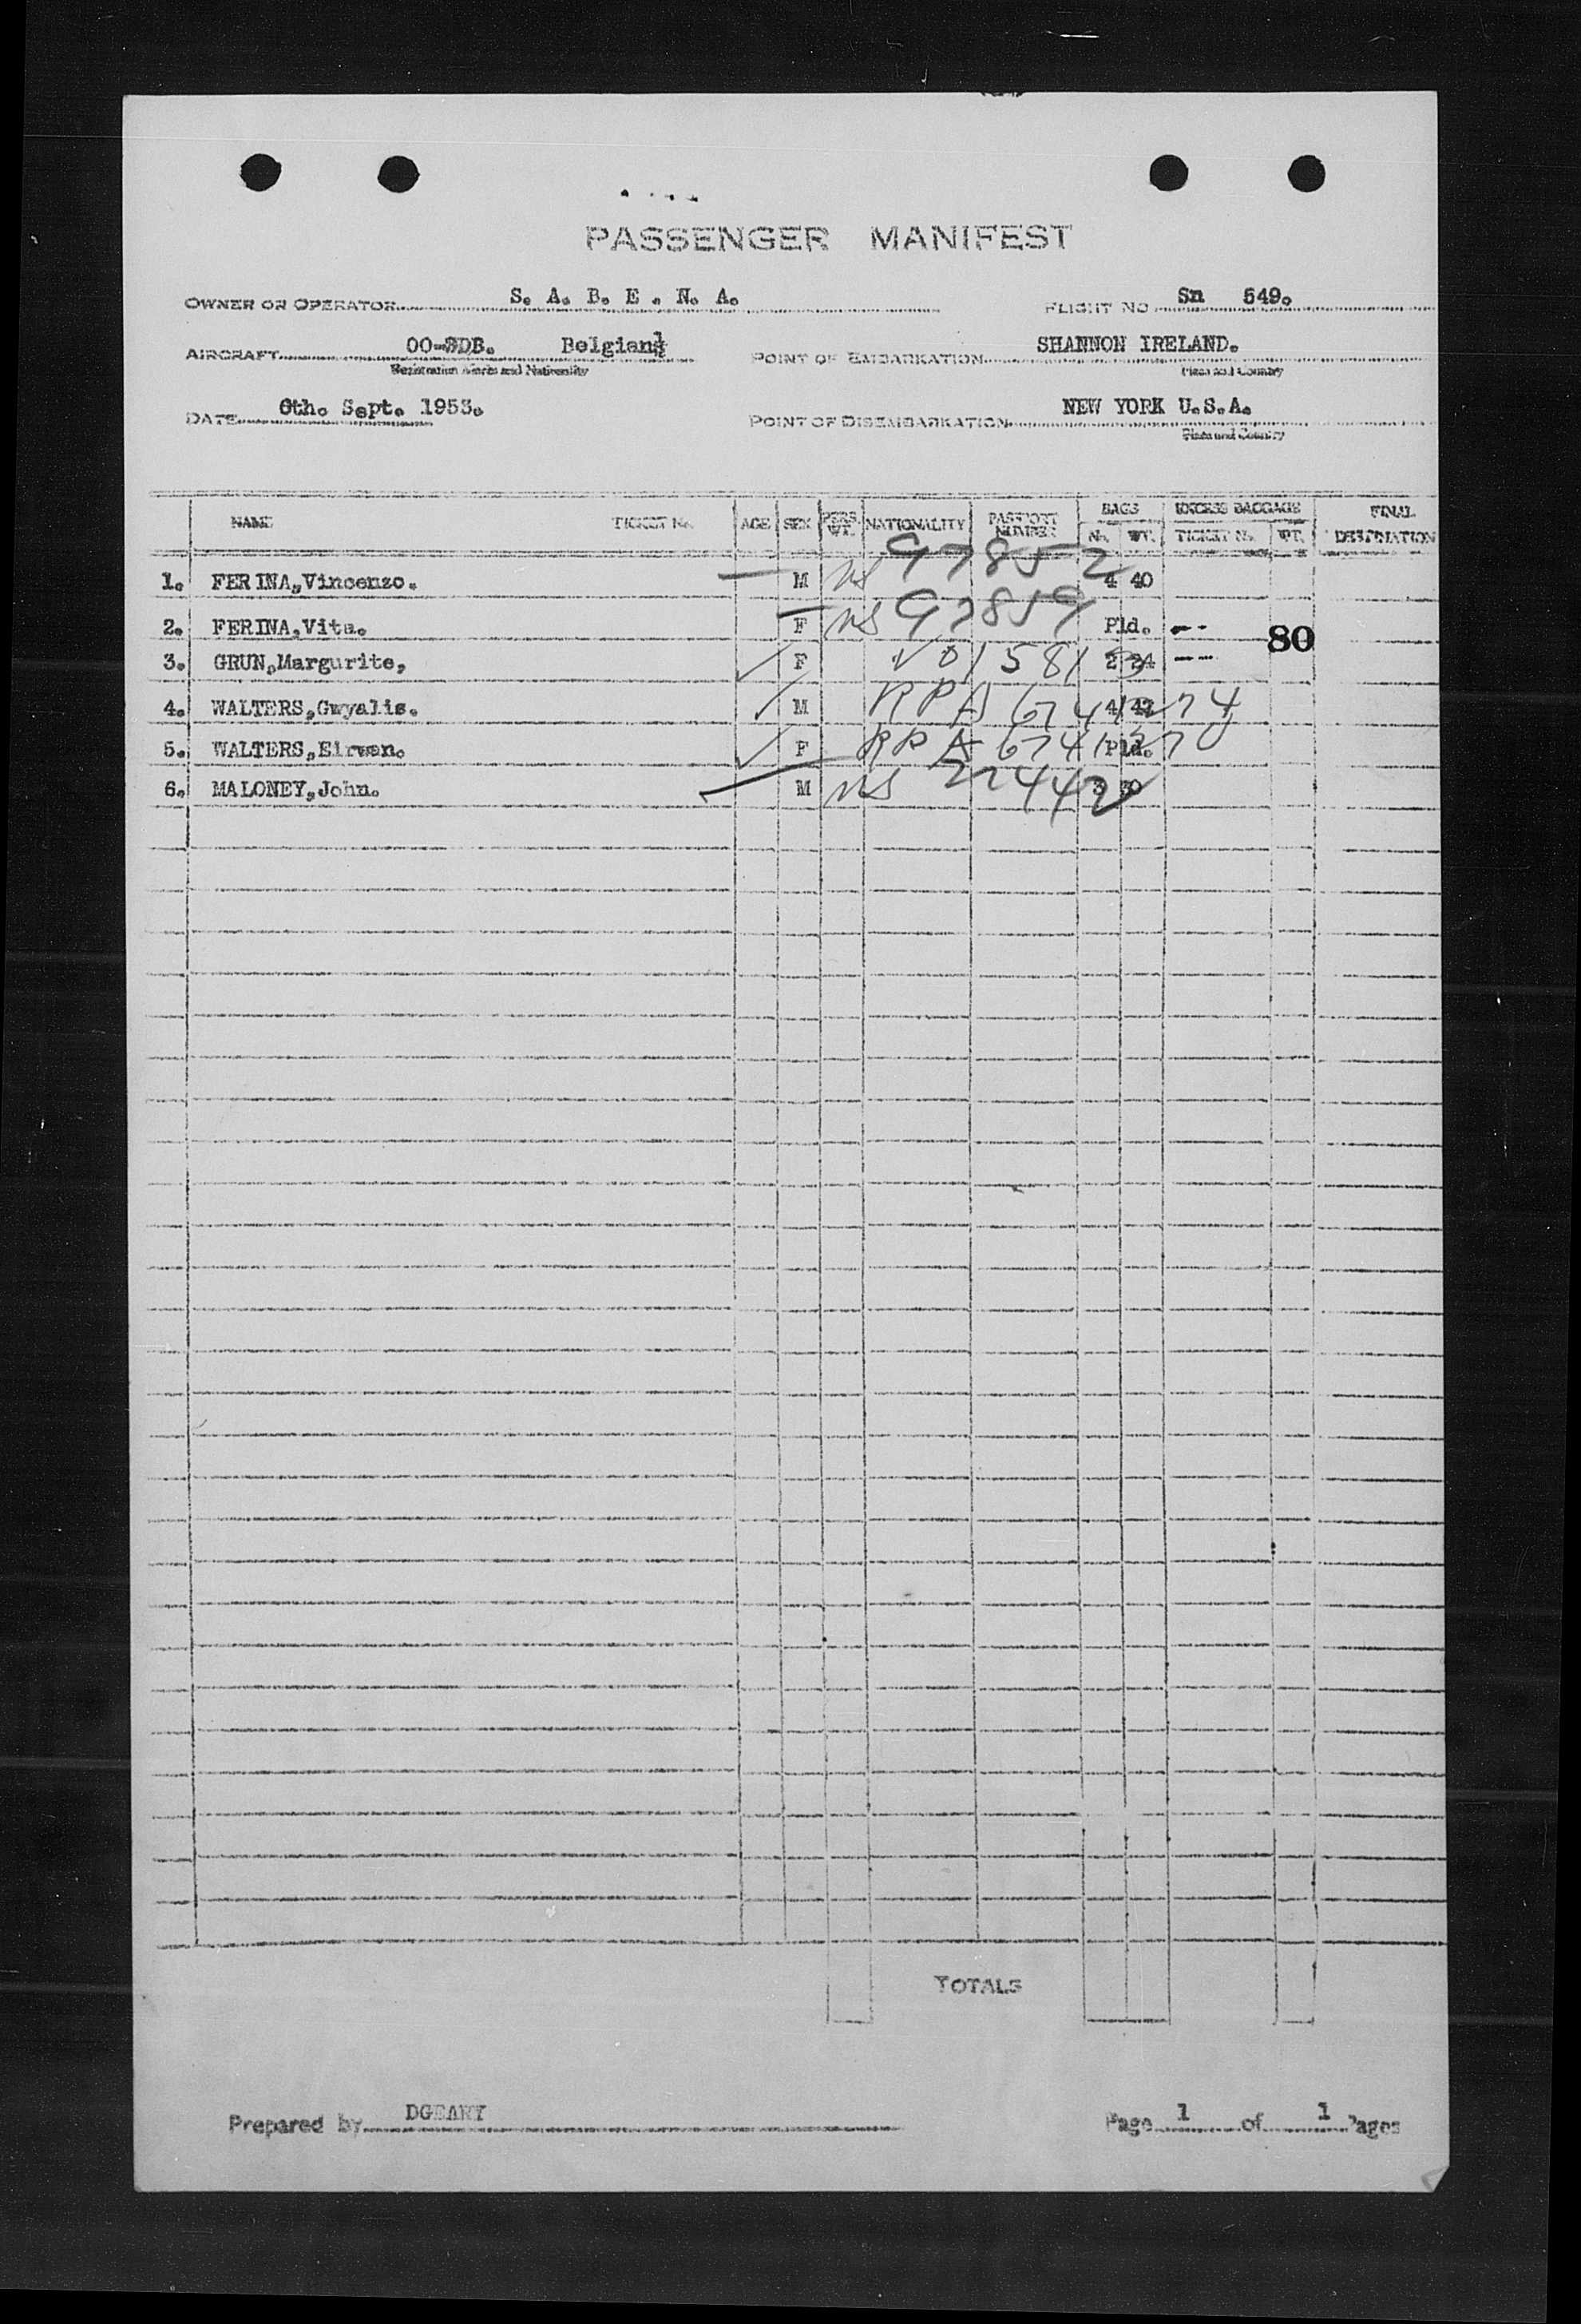 PASSENGER MANIFEST
OWNER OR OPERATOR S. A. B. E . N. A. FLIGHT NO Sn 549.
AIRCRAFT OO-SDB. Belgian POINT OF EMBARKATION SHANNON IRELAND.
Registration Marks and Nationality Place and Country
DATE 6th. Sept. 1953. POINT OF DISEMBARKATION NEW YORK U.S.A.
Place and Country
NAME TICKET No. AGE SEX PERS. WT. NATIONALITY PASSPORT NUMBER BAGS EXCESS BAGGAGE FINAL DESTINATION
No. WT. TICKET No. WT.
1. FERINA,Vincenzo. M NS 97852 4 40
2. FERINA,Vita. F NS 97859 Pld. --
80
3. GRUN,Margurite, F 2 24 ---
4. WALTERS,Gwyalis. M RPA 4
5. WALTERS,Eirwen. F RPA Pld.
6. MALONEY,John. M NS 22442 3 30
TOTALS
Prepared by DGEARY Page 1 of 1 Pages